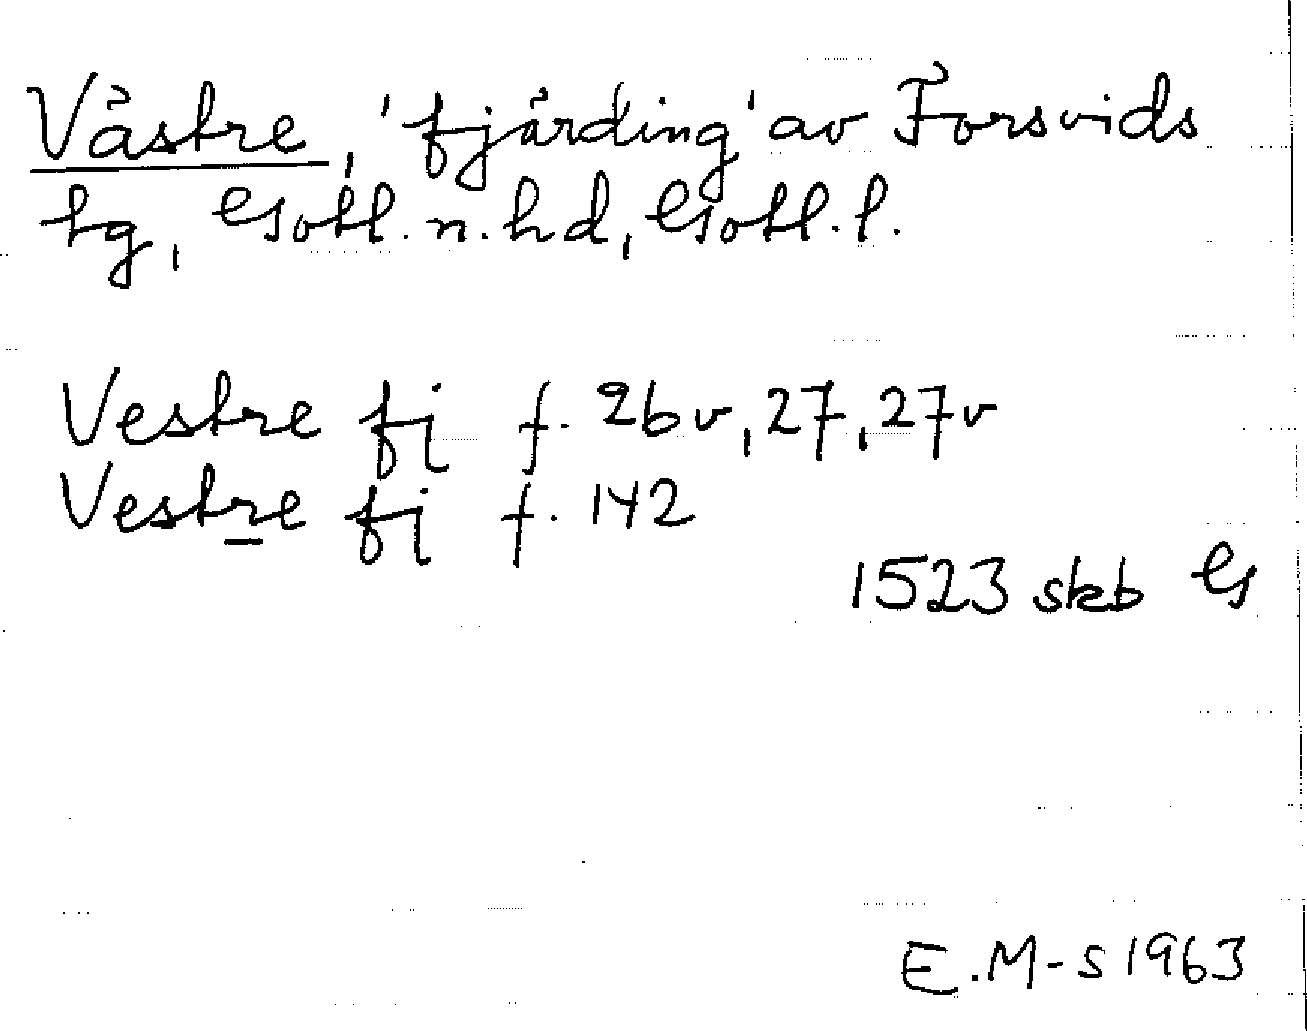 Västre, 'fjärding' av Forsvids
tg, Gotl. n. hd, Gotl. l.
Vestre fj f. 26v, 27, 27v
Vestre fj f. 142
1523 skb G
E.M-S 1963